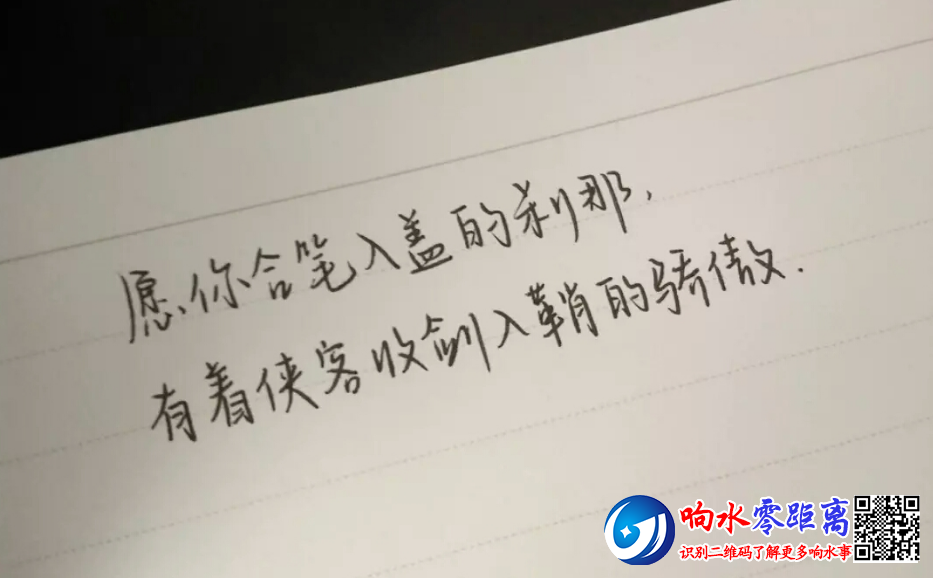 愿你合笔入盖的刹那,
有着侠客收剑入鞘的骄傲.
响水零距离
识别二维码了解更多响水事